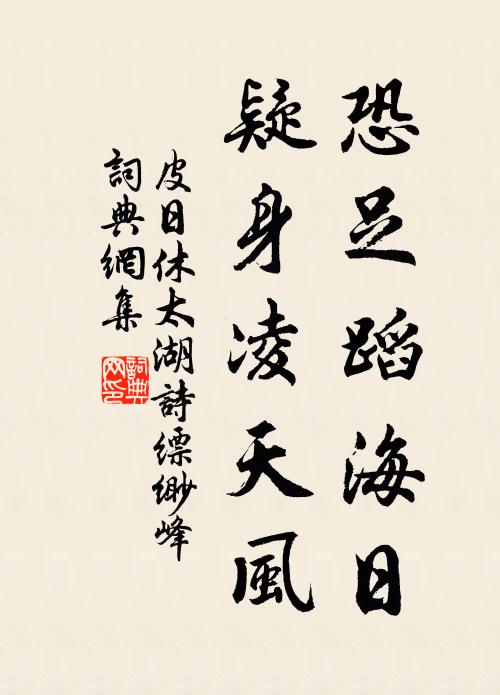 恐足蹈海日
疑身凌天風
皮日休太湖詩縹緲峰
詞典網集
詞典網印